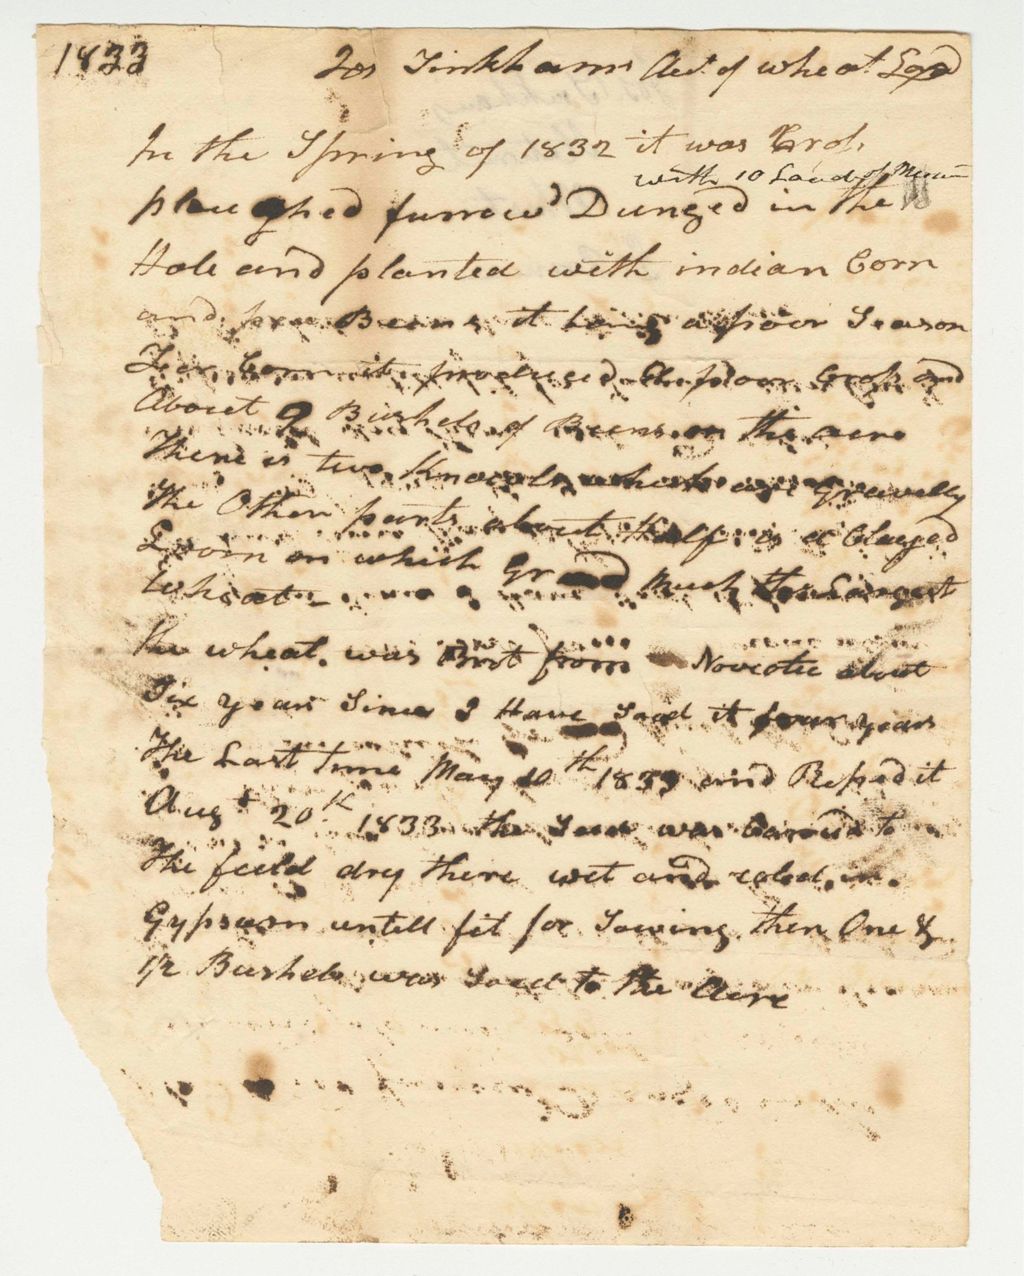 1833 Jos Tinkhams Act. of wheat
In the Spring of 1832 it was
with 10 Load of
ploughed furrowd Dunged in the
Hole and planted with indian Corn
and Beans it being a poor Season
For Corn it produced A poor Crop and
About 9 Bushels of Beens on the acre
There is two Knoowls which are Gravelly
The Other parts about Half is a Clayed
Loom on which Much the Largest
Wheat
the wheat. was first from Novcotie about
Six years Since I Have Soed it four years
The Last time May 10th 1833 and Reped it
Augst 20th 1833 the Seed was Carried to
The feild dry there wet and roled in
Gypsum untill fit for Sowing then One &
1/2 Bushels was Soed to the Acre